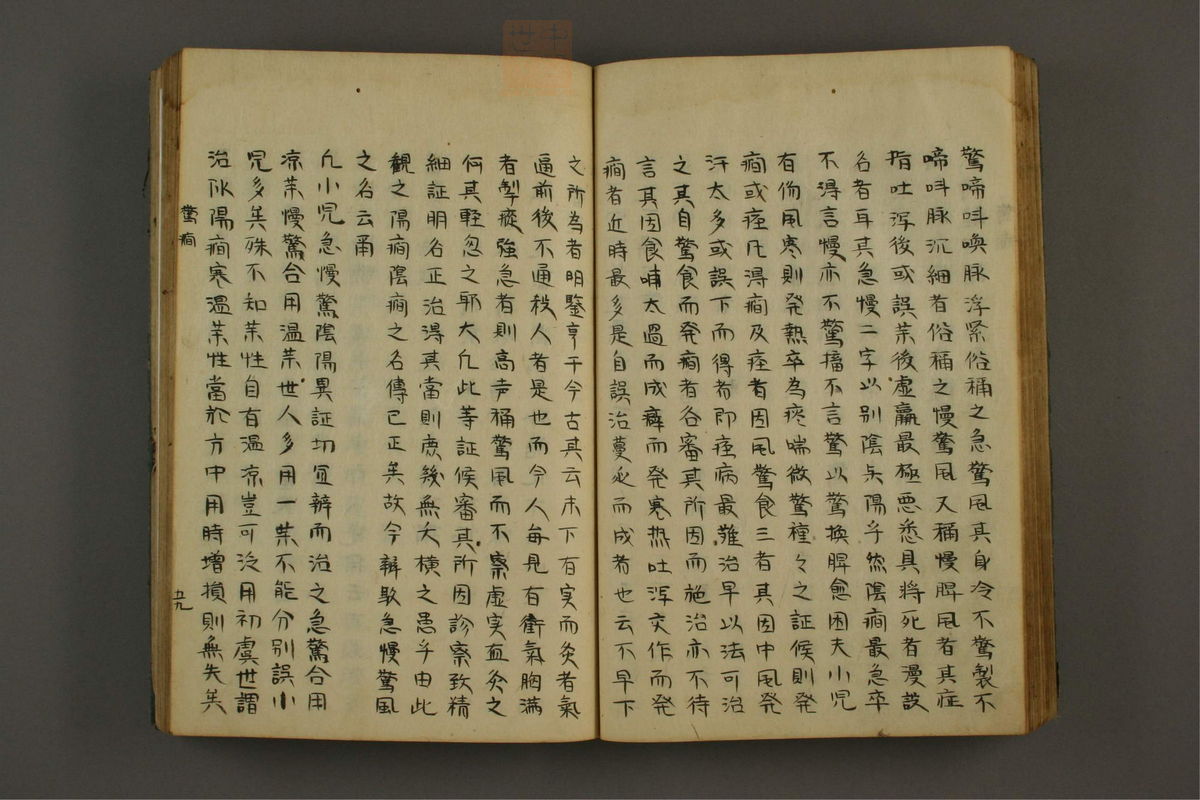 驚啼呌喚脉浮緊俗称之急驚風其身冷不驚製不
啼呌脉沉細者俗称之慢驚風又称慢脾風者其症
指吐泻後或誤茉後虚羸最極悪悉具将死者漫設
名者耳其急慢二字以别陰与陽乎然陰癇最急卒
不得言慢亦不驚搐不言驚以驚換脾愈困夫小児
有伤風寒則発熱卒為痰喘微驚種々之証候則発
癇或痓凡得癇及痓者因風驚食三者其因中風発
汗太多或誤下而得者即痓病最難治早以法可治
之其自驚食而発癇者各審其所因而施治亦不待
言其因食哺太過而成癖而発寒热吐泻交作而発
癇者近時最多是自誤治蔓延而成者也云不早下
之所為者明鑒亨千今古其云未下有实而灸者氣
逼前後不通殺人者是也而今人每見有衝氣胸满
者掣瘲強急者則高声称驚風而不察虚实血灸之
何其軽忽之耶大凡此等証候審其所因診察致精
細証明名正治得其當則庶幾無夭横之愚乎由此
観之陽癇陰癇之名傳已正矣故今辨駁急慢驚風
之名云甬
凡小児急慢驚陰陽異証切宜辨而治之急驚合用
凉茉慢驚合用温茉世人多用一茉不能分别誤小
児多矣殊不知茉性自有温凉豈可泛用初虞世謂
治似陽癇寒温茉性當於方中用時增損則無失矣
驚癇
五九
中世